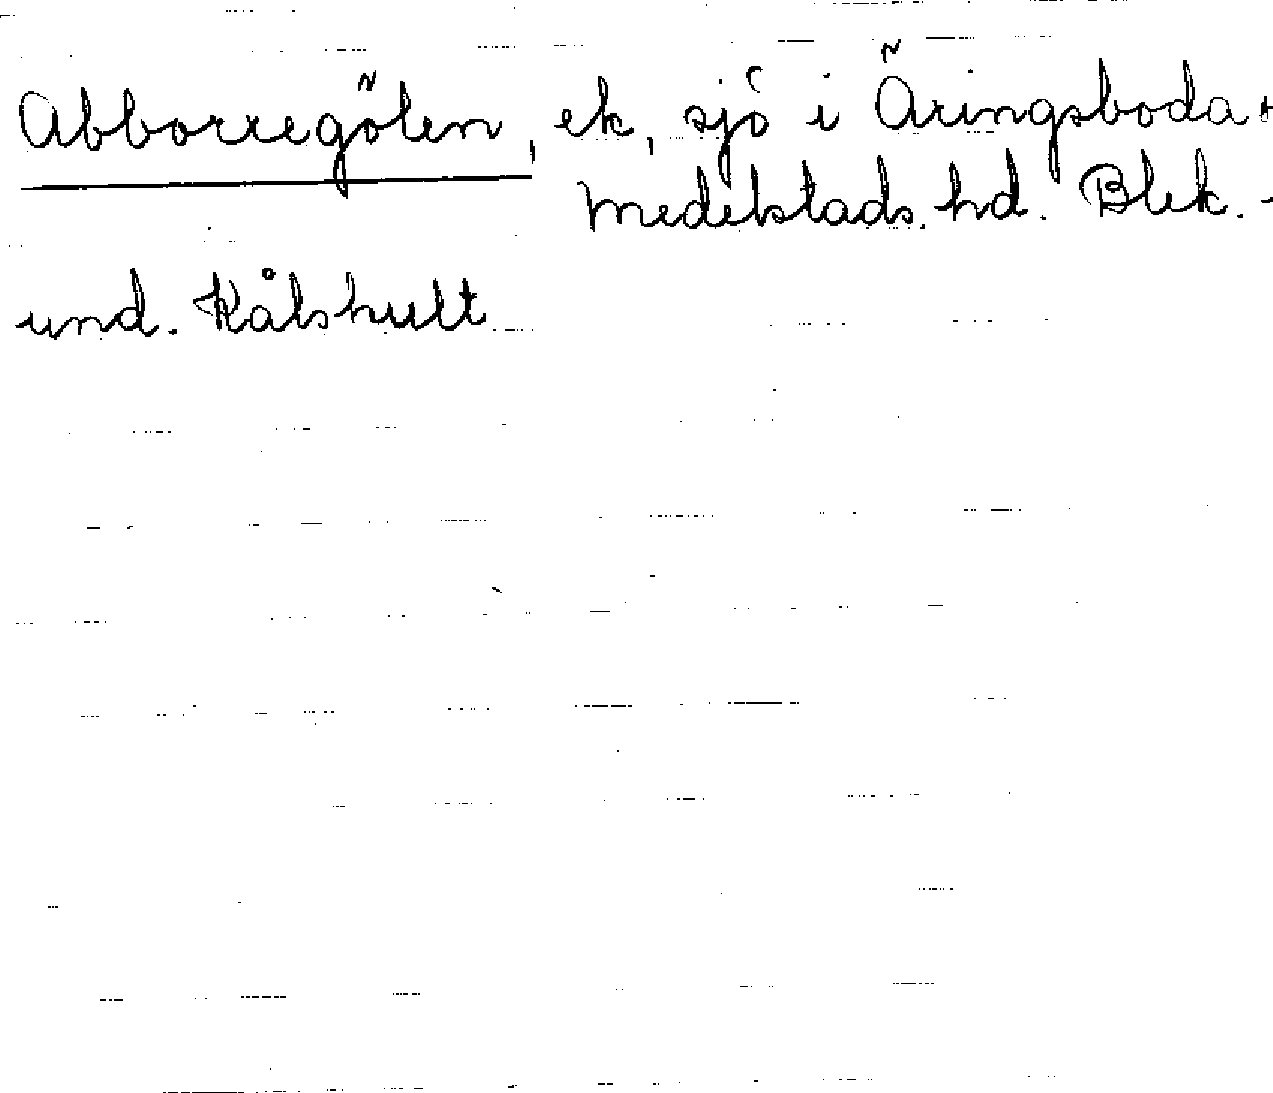 Abborregölen, ek, sjö i Äringsboda+
Medelstads hd. Blek. -
und. Kålshult